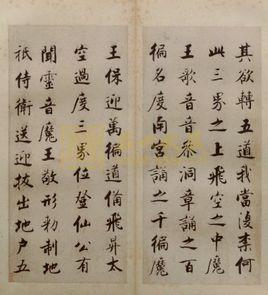 其欲轉五道我當復柰何
此三界之上飛空之中魔
王歌音音參洞章誦之百
徧名度南宮誦之千徧魔
王保迎萬徧道備飛昇太
空過度三界位登仙公有
聞靈音魔王敬形勑制地
祇侍衛送迎拔出地戶五